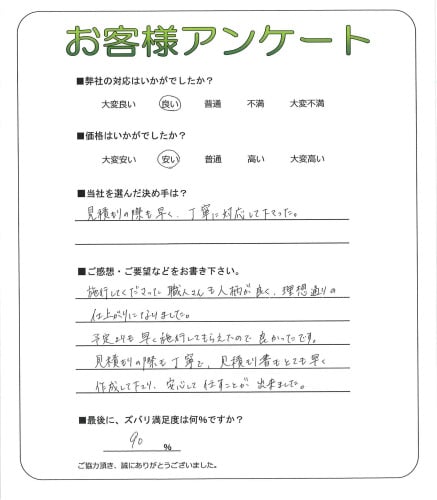 お客様アンケート
■弊社の対応はいかがでしたか？
大変良い 良い 普通 不満 大変不満
■価格はいかがでしたか？
大変安い 安い 普通 高い 大変高い
■当社を選んだ決め手は？
見積もりの際も早く、丁寧に対応して下さった。
■ご感想・ご要望などをお書き下さい。
施行してくださった職人さんも人柄が良く、理想通りの
仕上がりになりました。
予定よりも早く施行してもらえたので良かったです。
見積もりの際も丁寧で、見積り書もとても早く
作成して下さり、安心して任すことが出来ました。
■最後に、ズバリ満足度は何%ですか？
90 %
ご協力頂き、誠にありがとうございました。